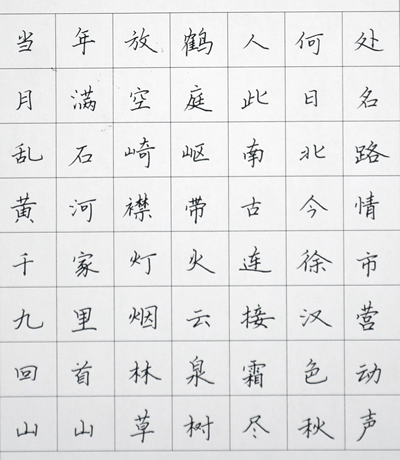 当年放鹤人何处
月满空庭此日名
乱石崎岖南北路
黄河襟带古今情
千家灯火连徐市
九里烟云接汉营
回首林泉霜色动
山山草树尽秋声